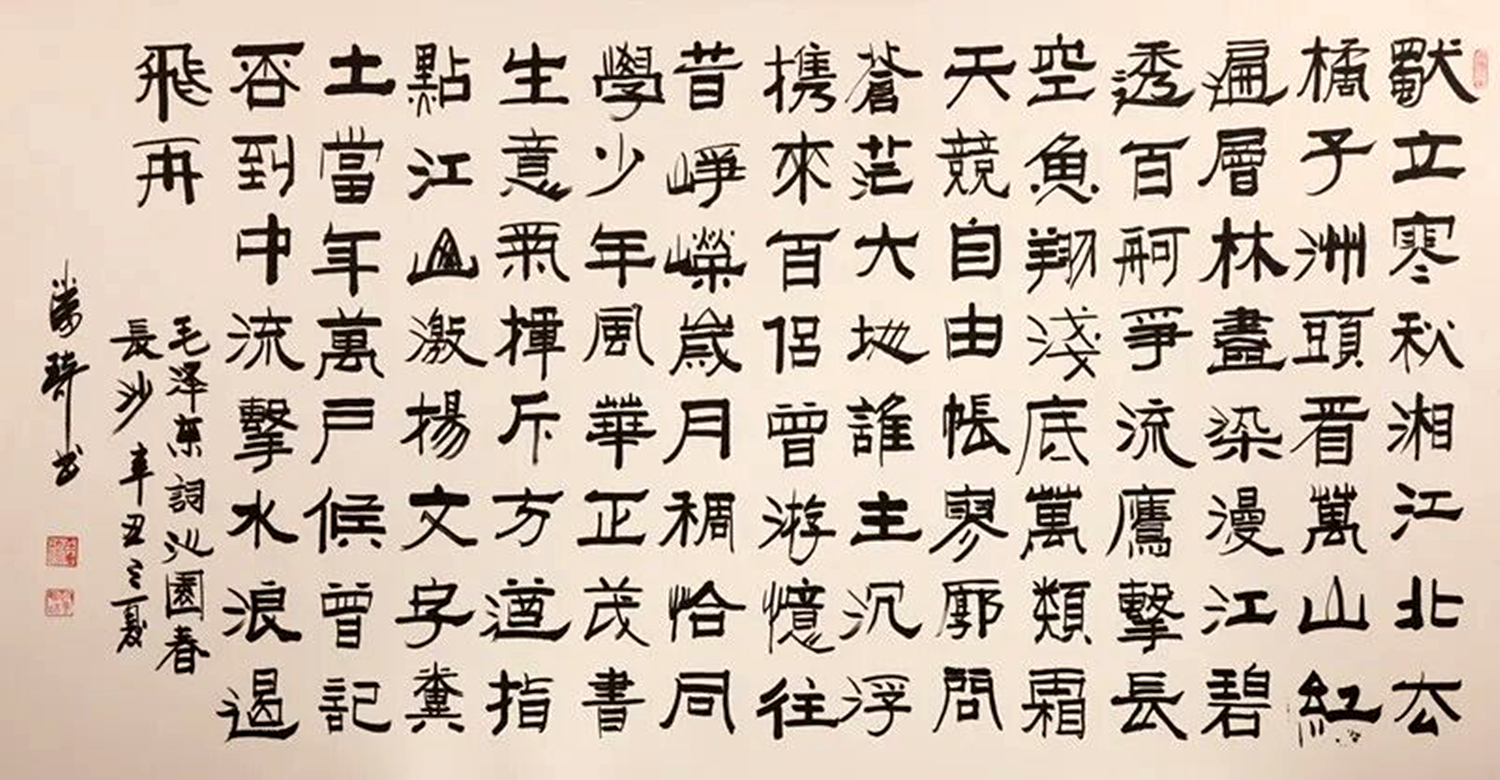 獨立寒秋湘江北去
橘子洲頭看萬山紅
遍層林盡染漫江碧
透百舸爭流鷹擊長
空魚翔淺底萬類霜
天競自由悵寥廓問
蒼茫大地誰主沉浮
携來百侶曾游憶往
昔崢嶸歲月稠恰同
學少年風華正茂書
生意氣揮斥方遒指
點江山激揚文字糞
土當年萬戶候曾記
否到中流擊水浪遏
飛舟
毛泽东詞沁園春
長沙辛丑之夏
琦书